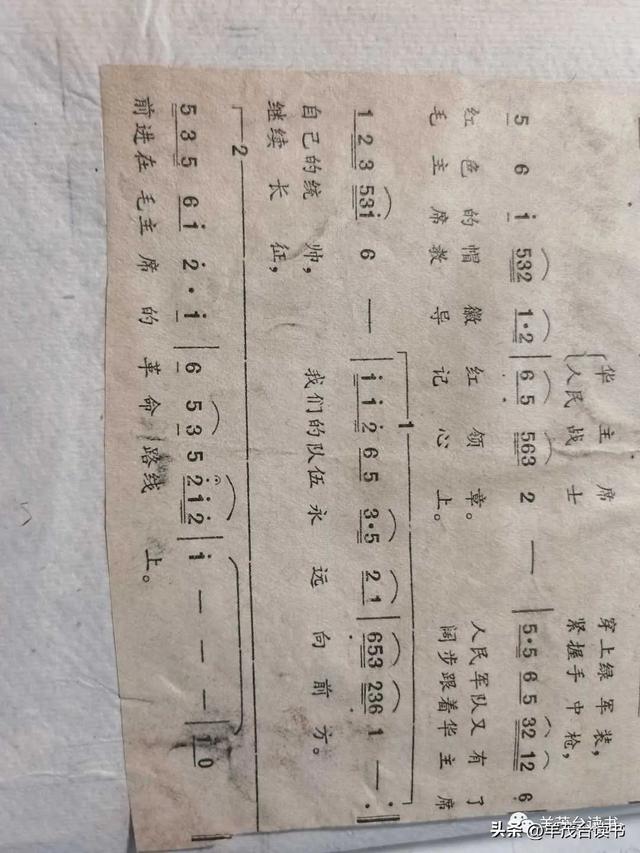 华主席 穿上绿军装，
人民战士 紧握手中枪，
5 6 i 532 1·2 | 6 5 563 2 — | 5·5 6 5 32 12 6
红色的帽徽红领章。 人民军队又有了
毛主席教导记心上。 阔步跟着华主席
1 2 3 53i 6 — | i i 2 6 5 3·5 2 1 | 653 236 1 — :‖
自己的统帅， 我们的队伍永远向前方。
继续长征，
5 3 5 6 i 2 · i | 6 5 3 5 2 i 2 | i — — — | i 0 ‖
前进在毛主席的革命路线上。
1
2
羊茂台读书
头条 @羊茂台读书